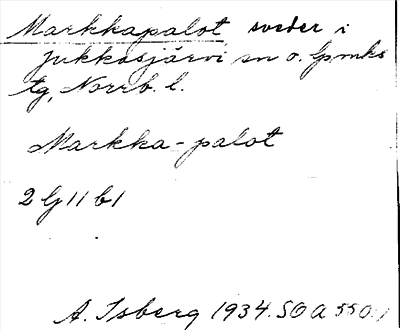 Markkapalot sveder i
Jukkasjärvi sn o. lpmks
tg, Norrb. l.
Markka-palot
2 G 11 b1
A. Isberg 1934. SOA 550:1